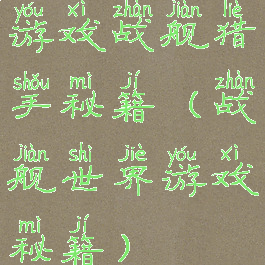 yóu xì zhàn jiàn liè
游戏战舰猎
shǒu mì jí zhàn
手秘籍（战
jiàn shì jiè yóu xì
舰世界游戏
mì jí
秘籍）